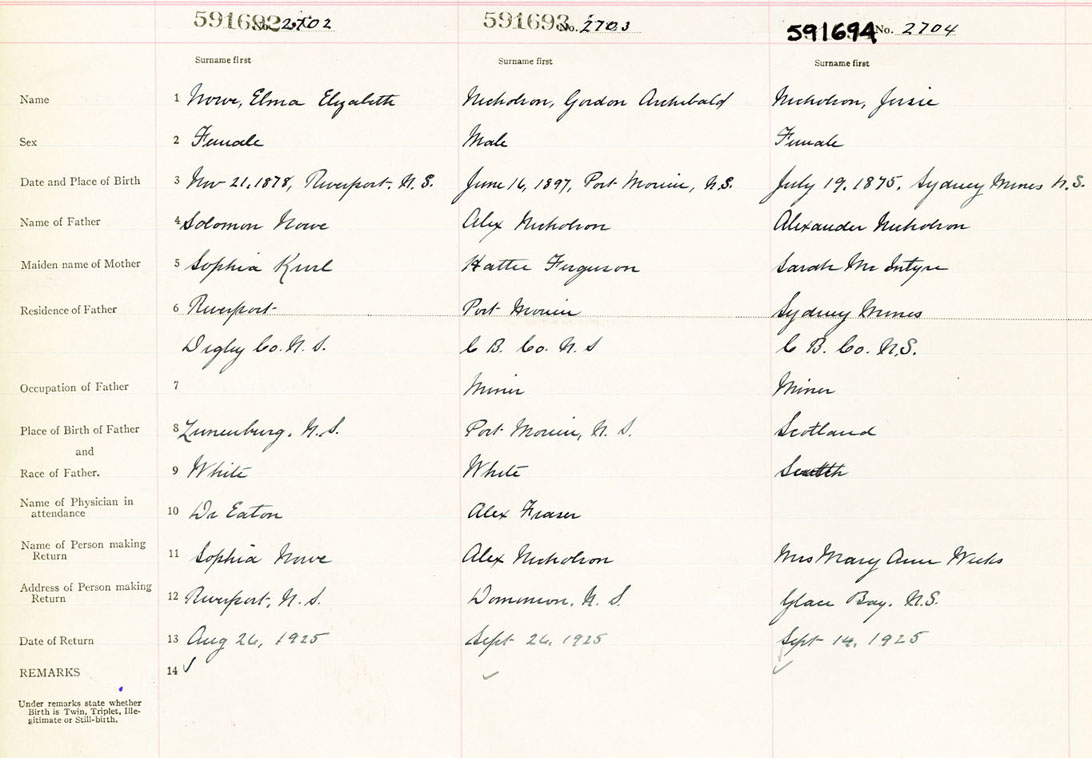 591692 No. 2702 591693 No. 2703 591694 No. 2704
Surname first Surname first Surname first
Name 1 Nowe, Elma Elizabeth Nicholson, Gordon Archibald Nicholson, Jessie
Sex 2 Female Male Female
Date and Place of Birth 3 Nov 21, 1878, Riverport, N.S. June 16, 1897, Port Morien, N.S. July 19, 1875, Sydney Mines N.S.
Name of Father 4 Solomon Nowe Alex Nicholson Alexander Nicholson
Maiden name of Mother 5 Sophia Hattie Ferguson Sarah McIntyre
Residence of Father 6 Riverport Port Morien Sydney Mines
Digby Co. N.S. C B. Co. N.S C B. Co. N.S.
Occupation of Father 7 Miner Miner
Place of Birth of Father 8 Lunenburg, N.S. Port Morien, N.S. Scotland
and
Race of Father. 9 White White
Name of Physician in
attendance 10 Dr Eaton Alex Fraser
Name of Person making
Return 11 Sophia Nowe Alex Nicholson Mrs Mary Ann Weeks
Address of Person making
Return 12 Riverport, N.S. Dominion, N.S. Glace Bay, N.S.
Date of Return 13 Aug 26, 1925 Sept 26, 1925 Sept 14, 1925
REMARKS 14
Under remarks state whether
Birth is Twin, Triplet, Ille-
gitimate or Still-birth.